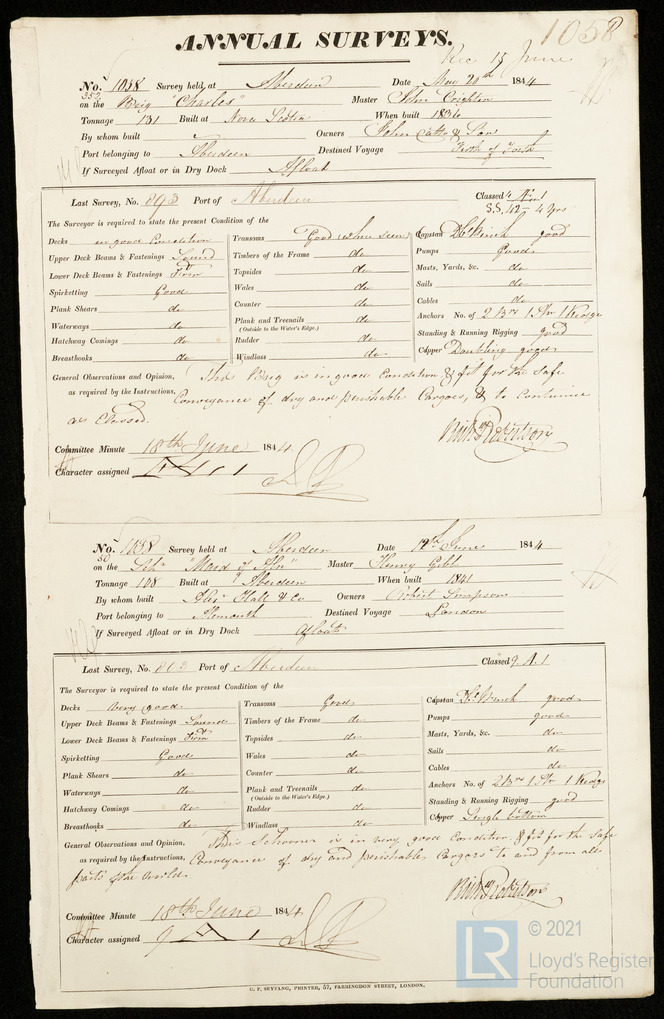 1058
ANNUAL SURVEYS.
Rec 15 June
No. 1058 Survey held at Aberdeen Date May 20th 1844
on the Brig "Charles" Master John Crighton
Tonnage 131 Built at Nova Scotia When built 1836
By whom built Owners John Catto & Son
Port belonging to Aberdeen Destined Voyage Firth of Forth
If Surveyed Afloat or in Dry Dock Afloat
Last Survey, No. 893 Port of Aberdeen Classed
S.S. /42 - 4 yrs
The Surveyor is required to state the present Condition of the
Decks in good Condition
Upper Deck Beams & Fastenings Sound
Lower Deck Beams & Fastenings Firm
Spirketting Good
Plank Shears do
Waterways do
Hatchway Comings do
Breasthooks do
Transoms Good where seen
Timbers of the Frame do
Topsides do
Wales do
Counter do
Plank and Treenails do
(Outside to the Water's Edge.)
Rudder do
Windlass do
Capstan good
Pumps Good
Masts, Yards, &c. do
Sails do
Cables do
Anchors No. of 2 Brs 1 Str 1 Kedge
Standing & Running Rigging good
Copper Doubling good
General Observations and Opinion, This Brig is in good Condition & fit for the safe
as required by the Instructions, Conveyance of dry and perishable Cargoes, & to Continue
as Classed.
Committee Minute 18th June 1844
Character assigned
No. 1058 Survey held at Aberdeen Date 12th June 1844
on the Schr "Maid of Aln" Master Henry Gibb
Tonnage 108 Built at Aberdeen When built 1841
By whom built Alexr Hall & Co Owners Robert Simpson
Port belonging to Alemouth Destined Voyage London
If Surveyed Afloat or in Dry Dock Afloat
Last Survey, No. 803 Port of Aberdeen Classed 9.A.1
The Surveyor is required to state the present Condition of the
Decks very good
Upper Deck Beams & Fastenings Sound
Lower Deck Beams & Fastenings Firm
Spirketting Good
Plank Shears do
Waterways do
Hatchway Comings do
Breasthooks do
Transoms Good
Timbers of the Frame do
Topsides do
Wales do
Counter do
Plank and Treenails do
(Outside to the Water's Edge.)
Rudder do
Windlass do
Capstan good
Pumps good
Masts, Yards, &c. do
Sails do
Cables do
Anchors No. of 2 Brs 1 Str 1 Kedge
Standing & Running Rigging good
Copper Single bottom
General Observations and Opinion, This Schooner is in very good Condition, & fit for the safe
as required by the Instructions, Conveyance of dry and perishable Cargoes to and from all
parts of the world.
Committee Minute 18th June 1844
Character assigned 9 A 1
C. F. SEYFANG, PRINTER, 57, FARRINGDON STREET, LONDON.
LR © 2021
Lloyd's Register
Foundation